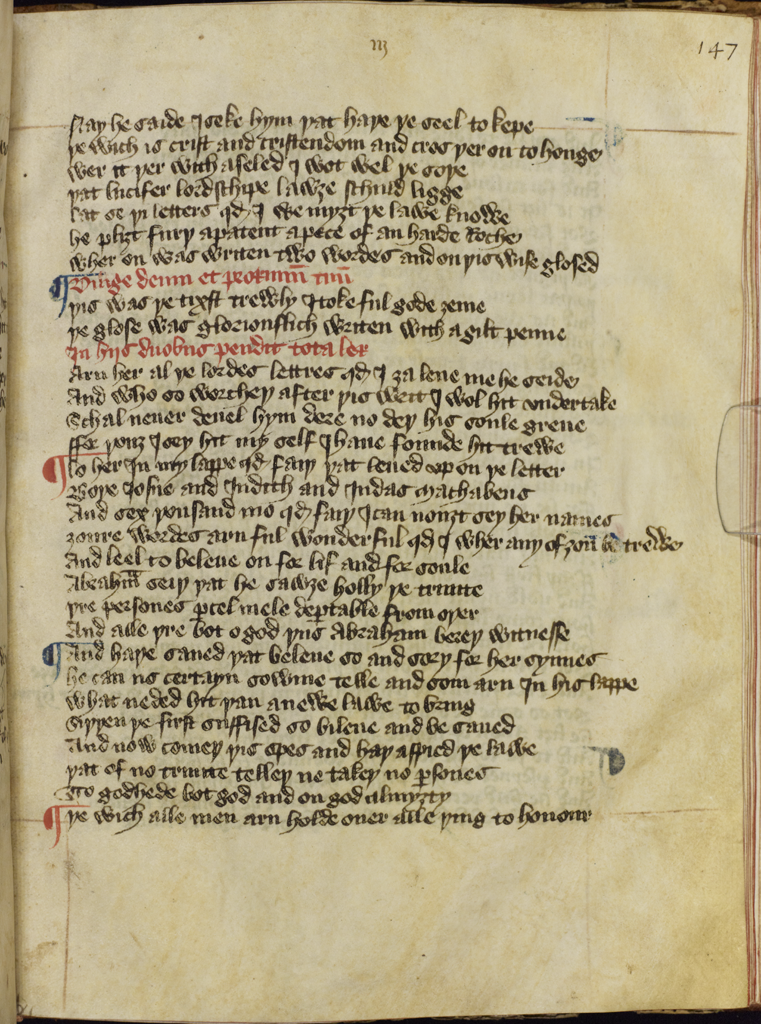 iij
147
Nay he saide I seke hym þat haþe þe seel to kepe
þe wich is crist and cristendom and cros þer on to honge
wer it þer with aseled I wot wel þe soþe
þat lucifer lordschipe lawze schuld ligge
Lat se þi letters qd I we myzt þe lawe knowe
he pliȝt furþ a patent a pece of an harde Roche
wher on was writen two wordes and on þis wise glosed
Dilige deum et proximū tuū
þis was þe tixst trewly I toke ful gode ȝeme
þe glose was gloriousslich writen with a gilt penne
In hijs duobus pendit tota lex
Arn her al ȝe lordes lettres qd I ȝa leue me he seide
And who so worcheþ after þis writ I wol hit vndertake
Schal neuer deuel hym dere no deþ his soule greue
ffor þouȝ I sey hit my self I haue sounde hit trewe
Lo her In my lappe qd faiþ þat leued vp on þe letter
Boþe Iosue and Iudith and Iudas Mathabeus
And sex þousand mo qd faiþ I can nouȝt sey her names
ȝoure wordes arn ful wonderful qd I wher any of ȝou be trewe
And leel to beleue on for lif and for soule
Abrahā seiþ þat he sawȝe holly þe trinite
þre persones ꝑcel mele deꝑtable from oþer
And alle þre bot o god þus Abraham bereþ witnesse
And haþe saued þat beleue so and sory for her synnes
he can no certayn somme telle and som arn In his lappe
what neded hit þan a newe lawe to bring
Siþþen þe first suffised so bileue and be saued
And now comeþ þis spes and haþ aspied þe lawe
þat of no trinite telleþ ne takeþ no ꝑsones
To godhede bot god and on god almyȝty
þe wich alle men arn holde ouer alle þing to honour